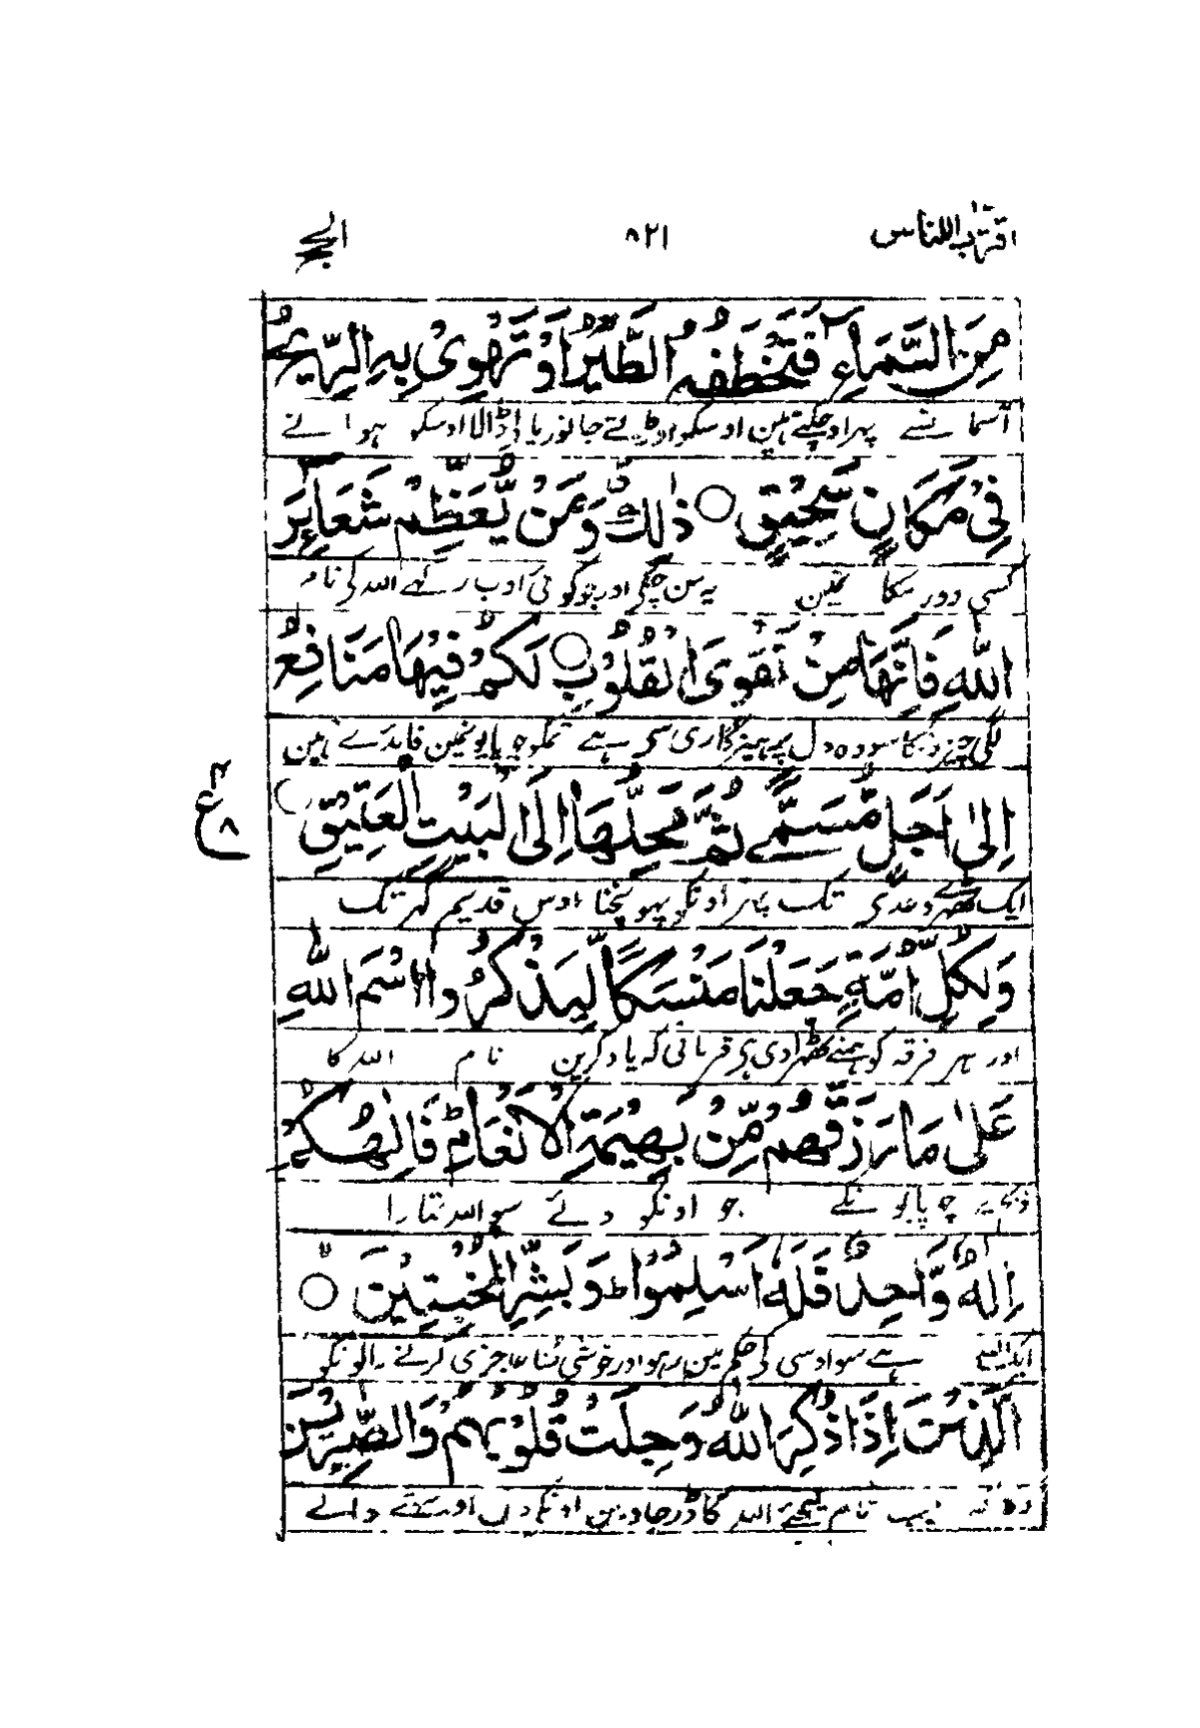 اقترب للناس ۸۲۱ الحج
مِنَ السَّمَآءِ فَتَخْطَفُهُ الطَّيْرُ اَوْ تَهْوِىْ بِهِ الرِّيْحُ
آسمان سے پہر اوچکتے ہین اوسکو اوڑتے جانور یا اڈالا اوسکو ہوا نے
فِىْ مَكَانٍ سَحِيْقٍ ○ ذٰلِكَ وَمَنْ يُّعَظِّمْ شَعَآئِرَ
كسی دور مکا نمین یہ سن چکی اور جو کوئی ادب رکہے اللہ کی نام
اللّٰهِ فَاِنَّهَا مِنْ تَقْوَى الْقُلُوْبِ ○ لَكُمْ فِيْهَا مَنَافِعُ
لگی چیزونکا سو وہ دل پرہیزگاری سی ہے تمکو چوپایونمین فایدے ہین
اِلٰى اَجَلٍ مُّسَمًّى ثُمَّ مَحِلُّهَا اِلَى الْبَيْتِ الْعَتِيْقِ
ایک ٹھہرے وعدی تک پہر اونکو پہونچنا اوس قدیم گہر تک
وَلِكُلِّ اُمَّةٍ جَعَلْنَا مَنْسَكًا لِّيَذْكُرُوا اسْمَ اللّٰهِ
اور ہر فرقہ کو ہمنے ٹھرادی ہی قربانی کہ یاد کرین نام اللہ کا
عَلٰى مَا رَزَقَهُمْ مِّنْۢ بَهِيْمَةِ الْاَنْعَامِ ؕ فَاِلٰهُكُمْ
ذبح چوپایو نکے جو اونکو دئے سو اللہ تمہارا
اِلٰهٌ وَّاحِدٌ فَلَهٗۤ اَسْلِمُوْا ؕ وَبَشِّرِ الْمُخْبِتِيْنَ ○
ہے سو اوسی کی حکم مین رہو اور خوشی سنا عاجزی کرنے والونکو
الَّذِيْنَ اِذَا ذُكِرَ اللّٰهُ وَجِلَتْ قُلُوْبُهُمْ وَالصّٰبِرِيْنَ
وہ کہ جب نام لیجئے اللہ کا ڈر جاوین اونکے دل اور سہنے والے
ع ۸